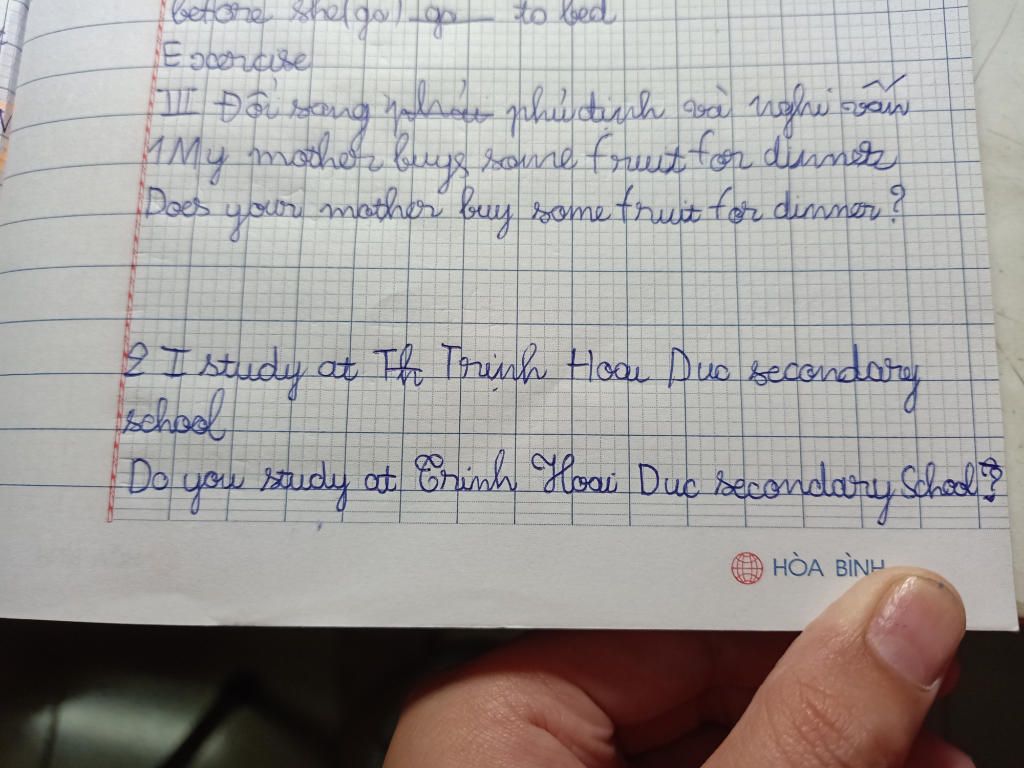 before she(go) go to bed
Exercise
III Đổi sang phủ định và nghi vấn
1 My mother buys some fruit for dinner
Does your mother buy some fruit for dinner?
2 I study at Th Trinh Hoai Duc secondary
school
Do you study at Trinh Hoai Duc secondary School?
HÒA BÌNH